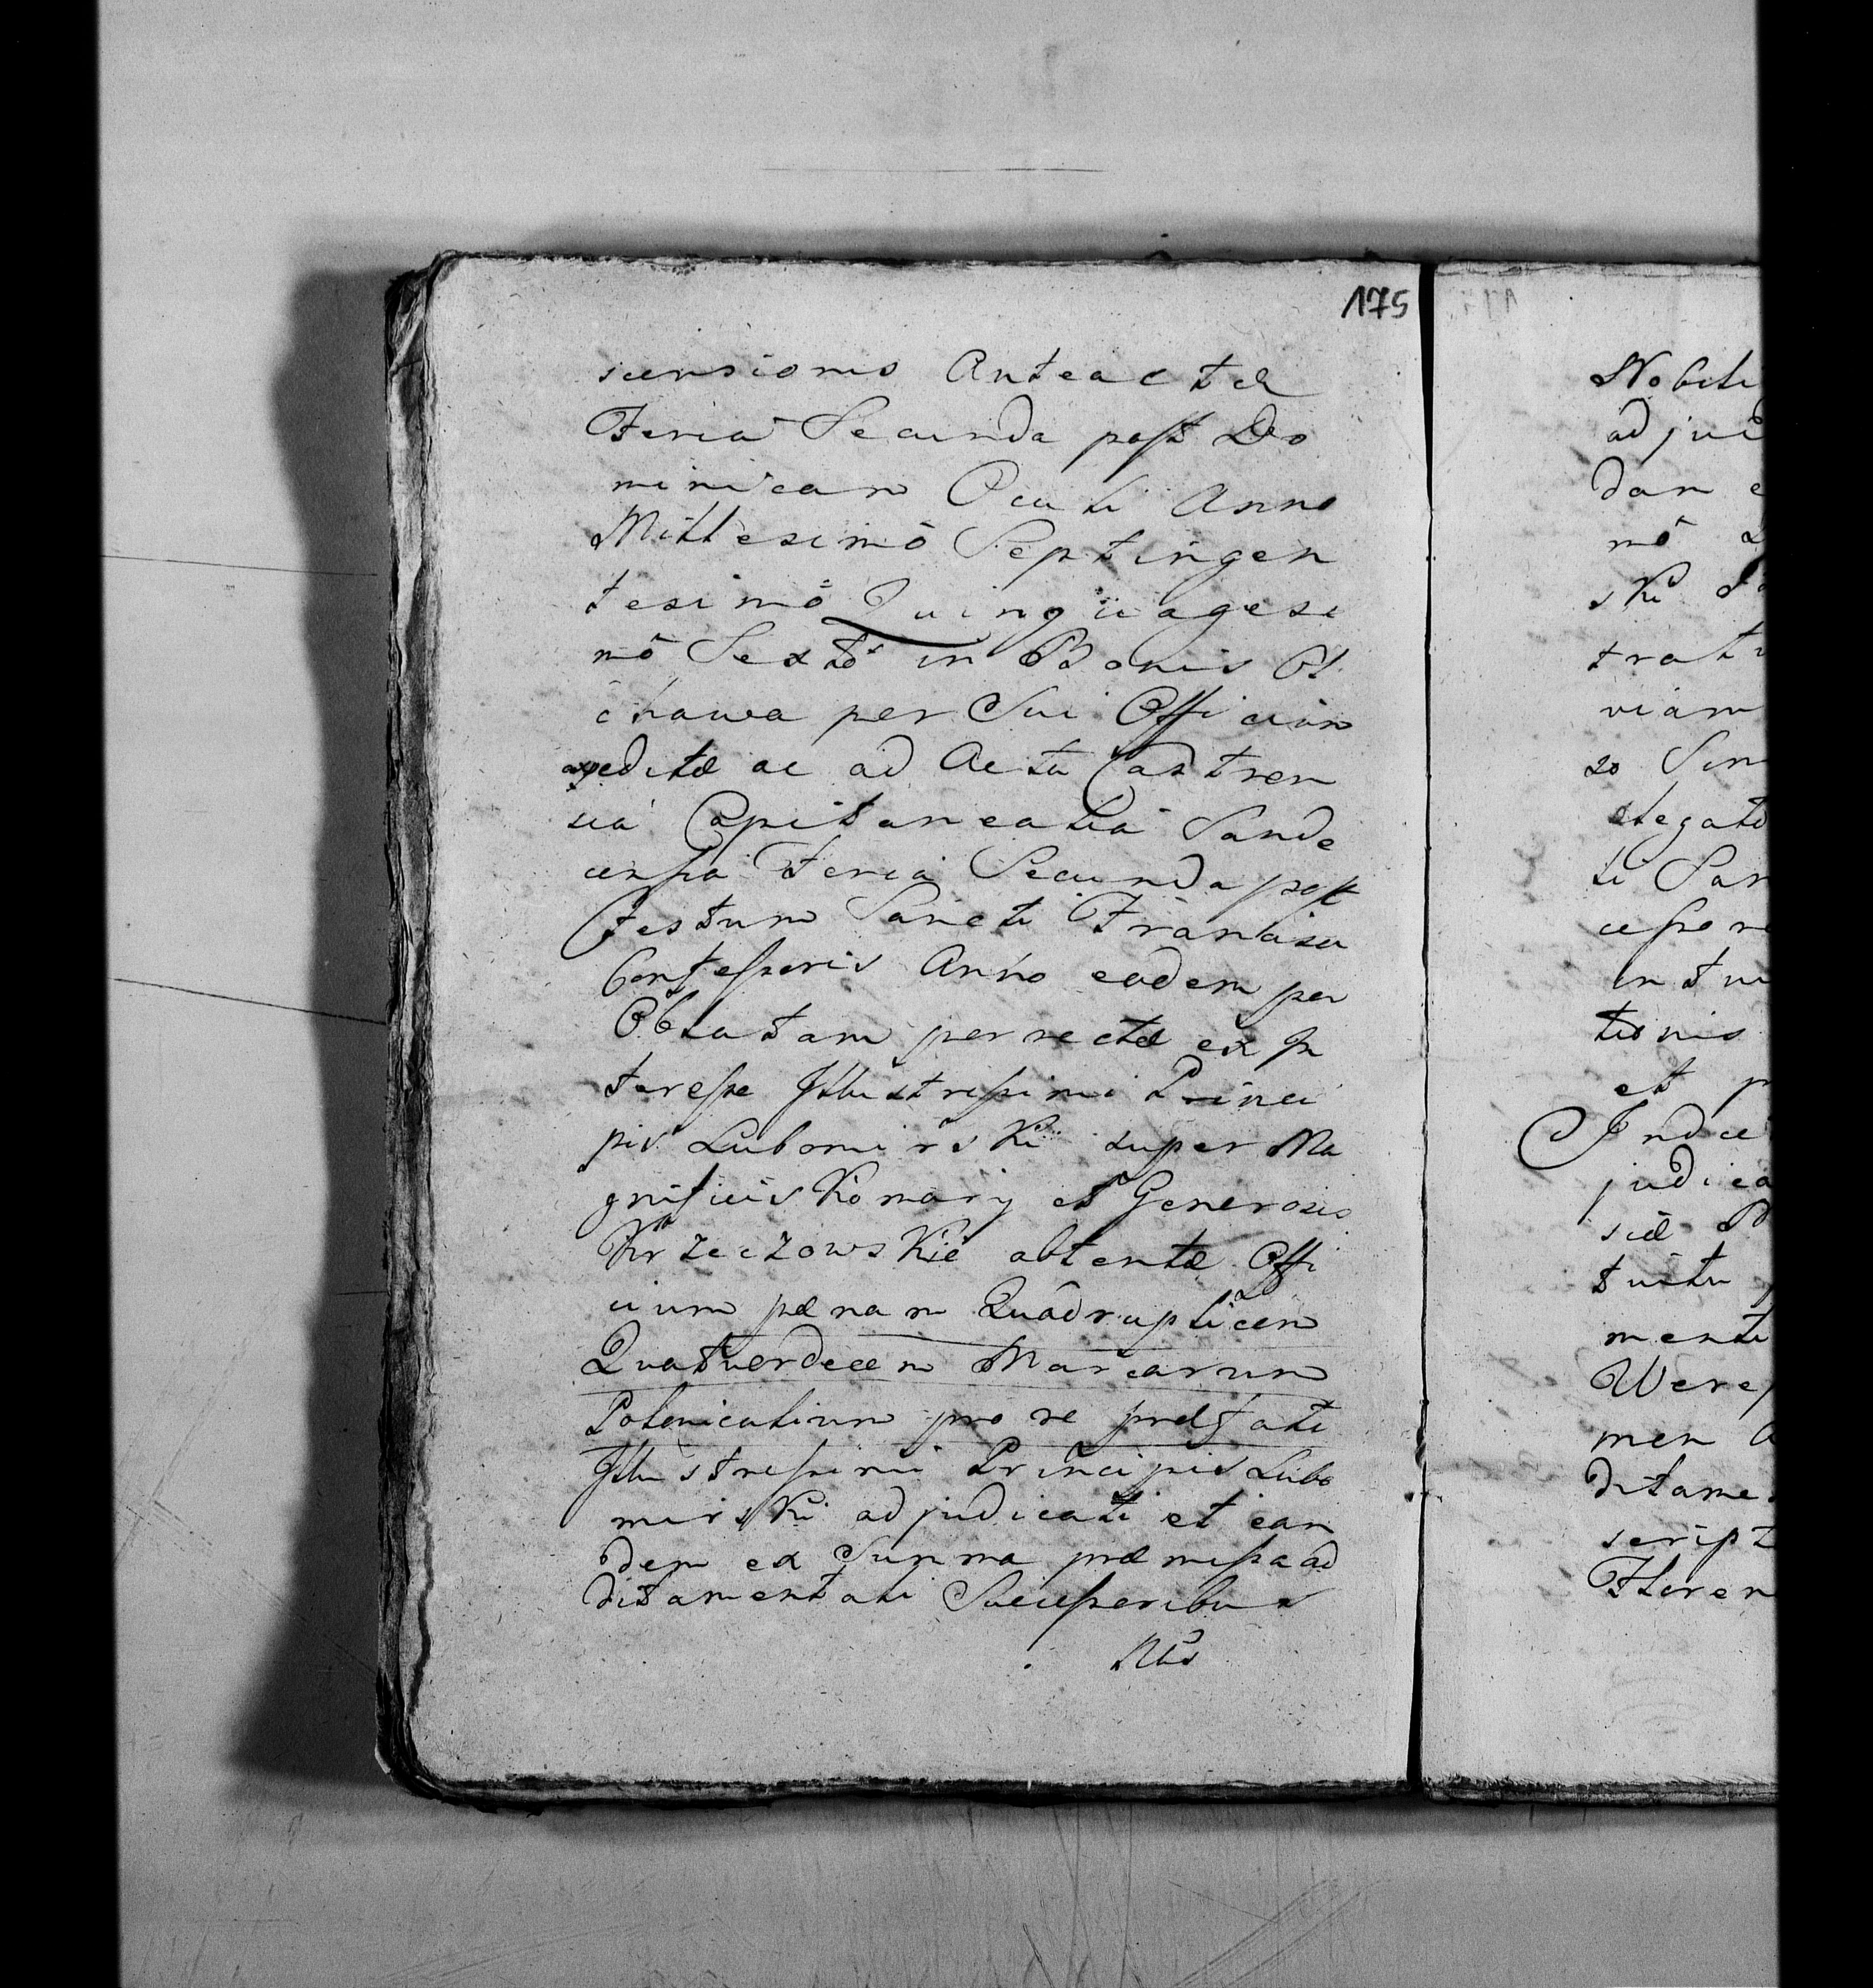 175
scensionis Anteactæ
Feria Secunda post Do
minicam Oculi Anno
Millesimô Septingen
tesimô Quinquagesi
mô Sextô in Bonis Ol
chawa per Sui Officium
expeditæ ac ad Acta Castren
sia Capitanealia Sande
censia Feria Secunda post
Festum Sancti Francisci
Confessoris Anno eodem per
Oblatam perrectæ ex In
teresse Illustrissimi Princi
pis Lubomirski super Ma
gnificis Komary et Generosis
Krzeczowskie obtentæ Offi
cium pænam Quadruplicem
Quatuordecem Marcarum
Polonicalium pro re præfati
Illustrissimi Principis Lubo
mirski adjudicati et ean
dem ex Summa præmissa ad
ditamentati Successoribus
Nobili
adjud
dam e
mô
ski
trati
viam
Sum
elegato
ti San
cesso
intui
tionis
et p
Indu
judica
siæ
tuitu
menti
men A
ditame
script
Floren